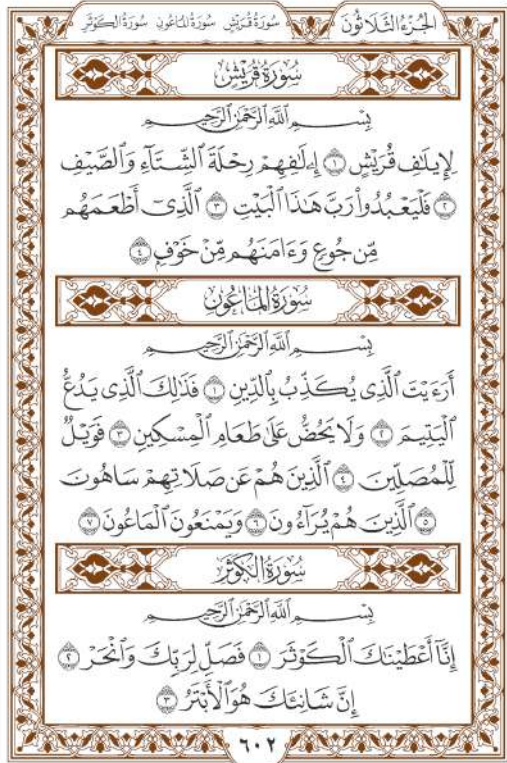 الجُزْءُ الثَّلَاثُونَ سُورَةُ قُرَيْشٍ سُورَةُ المَاعُونِ سُورَةُ الكَوْثَرِ
سُورَةُ قُرَيْشٍ
بِسْمِ ٱللَّهِ ٱلرَّحْمَٰنِ ٱلرَّحِيمِ
لِإِيلَٰفِ قُرَيْشٍ ١ إِۦلَٰفِهِمْ رِحْلَةَ ٱلشِّتَآءِ وَٱلصَّيْفِ
٢ فَلْيَعْبُدُواْ رَبَّ هَٰذَا ٱلْبَيْتِ ٣ ٱلَّذِىٓ أَطْعَمَهُم
مِّن جُوعٍ وَءَامَنَهُم مِّنْ خَوْفٍۭ ٤
سُورَةُ المَاعُونِ
بِسْمِ ٱللَّهِ ٱلرَّحْمَٰنِ ٱلرَّحِيمِ
أَرَءَيْتَ ٱلَّذِى يُكَذِّبُ بِٱلدِّينِ ١ فَذَٰلِكَ ٱلَّذِى يَدُعُّ
ٱلْيَتِيمَ ٢ وَلَا يَحُضُّ عَلَىٰ طَعَامِ ٱلْمِسْكِينِ ٣ فَوَيْلٌ
لِّلْمُصَلِّينَ ٤ ٱلَّذِينَ هُمْ عَن صَلَاتِهِمْ سَاهُونَ
٥ ٱلَّذِينَ هُمْ يُرَآءُونَ ٦ وَيَمْنَعُونَ ٱلْمَاعُونَ ٧
سُورَةُ الكَوْثَرِ
بِسْمِ ٱللَّهِ ٱلرَّحْمَٰنِ ٱلرَّحِيمِ
إِنَّآ أَعْطَيْنَٰكَ ٱلْكَوْثَرَ ١ فَصَلِّ لِرَبِّكَ وَٱنْحَرْ ٢
إِنَّ شَانِئَكَ هُوَ ٱلْأَبْتَرُ ٣
٦٠٢